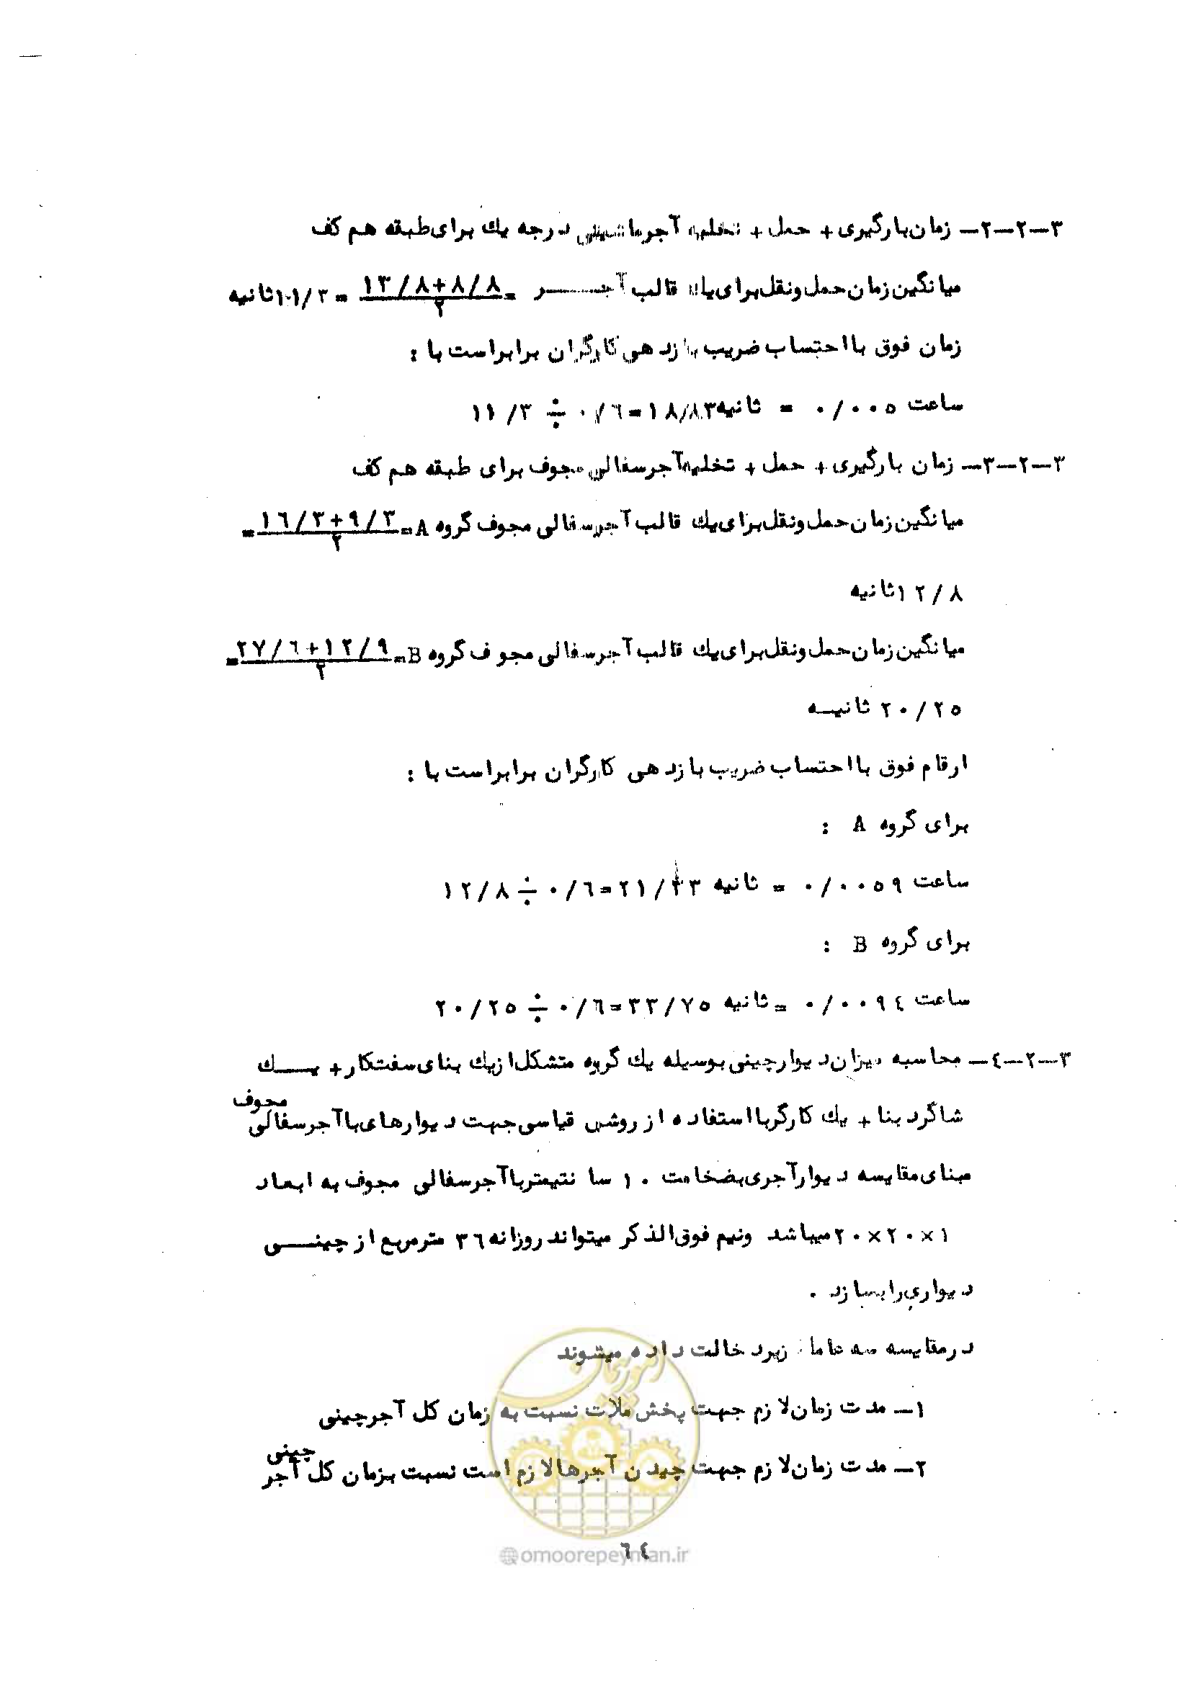 ۳-۲-۲- زمان بارگیری + حمل + تخلیه آجر ماشینی درجه یک برای طبقه هم کف
میانگین زمان حمل و نقل برای یک قالب آجـــــر = ۱۳/۸+۸/۸ / ۲ = ۱۰۱/۳ ثانیه
زمان فوق با احتساب ضریب بازدهی کارگران برابر است با :
۱۱/۳ ÷ ۰/٦=۱۸/۸۳ ثانیه = ۰/۰۰۵ ساعت
۳-۲-۳- زمان بارگیری + حمل + تخلیه آجر سفالی مجوف برای طبقه هم کف
میانگین زمان حمل و نقل برای یک قالب آجر سفالی مجوف گروه A= ۱٦/۳+۹/۳ / ۲ =
۱۲/۸ ثانیه
میانگین زمان حمل و نقل برای یک قالب آجر سفالی مجوف گروه B= ۲۷/٦+۱۲/۹ / ۲ =
۲۰/۲۵ ثانیـه
ارقام فوق با احتساب ضریب بازدهی کارگران برابر است با :
برای گروه A :
۱۲/۸ ÷ ۰/٦=۲۱/۳۳ ثانیه = ۰/۰۰۵۹ ساعت
برای گروه B :
۲۰/۲۵ ÷ ۰/٦=۳۳/۷۵ ثانیه = ۰/۰۰۹٤ ساعت
۳-۲-٤- محاسبه میزان دیوارچینی بوسیله یک گروه متشکل از یک بنای سفتکار + یـــک
شاگرد بنا + یک کارگر با استفاده از روش قیاسی جهت دیوارهای با آجر سفالی مجوف
مبنای مقایسه دیوار آجری بضخامت ۱۰ سانتیمتر با آجر سفالی مجوف به ابعاد
۱×۲۰×۲۰ میباشد و تیم فوق الذکر میتواند روزانه ۳٦ مترمربع از چینـــی
دیواری را بسازد .
در مقایسه سه عامل زیر دخالت داده میشوند
۱- مدت زمان لازم جهت پخش ملات نسبت به زمان کل آجرچینی
۲- مدت زمان لازم جهت چیدن آجرها لازم است نسبت بزمان کل آجر چینی
٦٤
امور پیمان
@omoorepeyman.ir